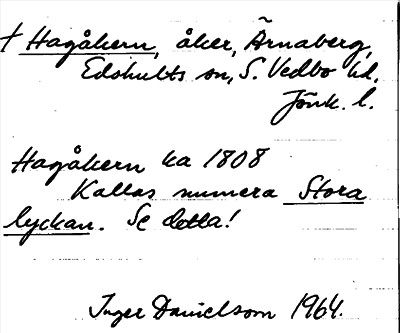 † Hagåkern, åker, Ärnaberg,
Edshults sn, S. Vedbo hd,
Jönk. l.
Hagåkern ka 1808
Kallas numera Stora
lyckan. Se detta!
Inger Danielsson 1964.